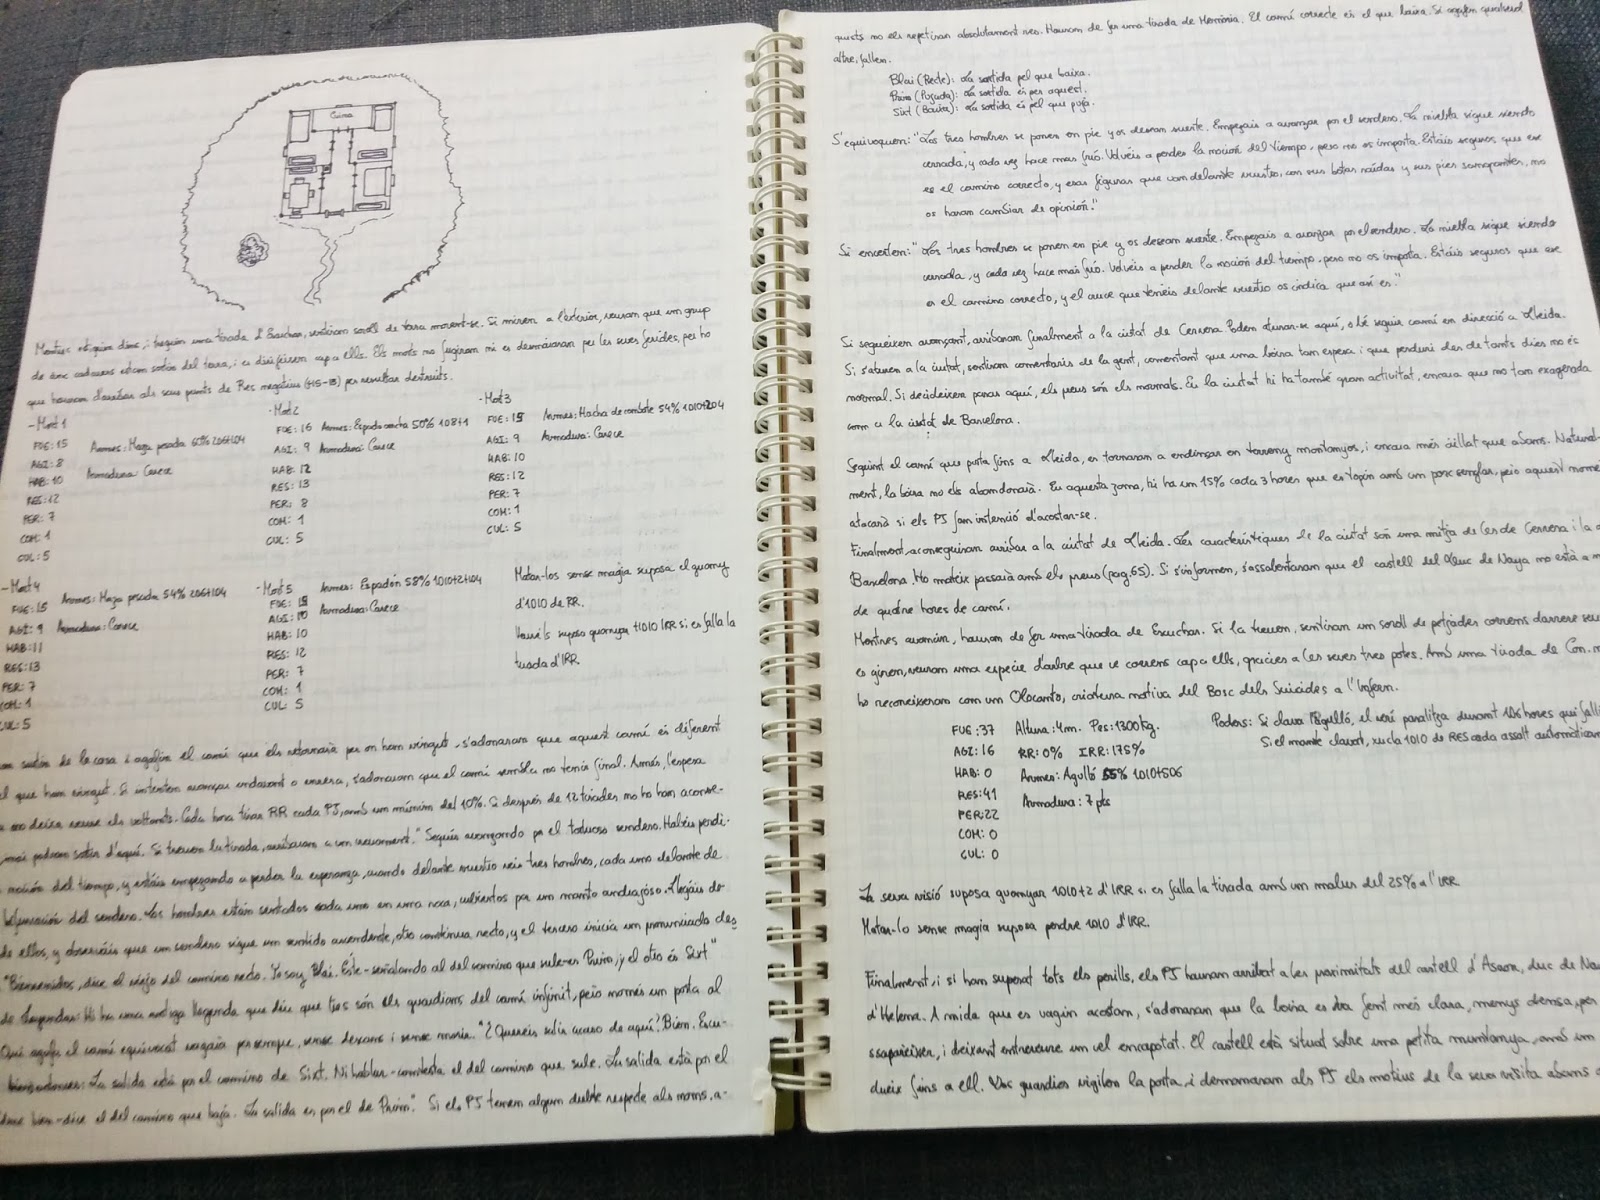 Cuina
de cinc cadavers estan sortint del terra, i es dirigeixen cap a ells. Els morts no fugiran ni es desmaiaran per les seves ferides, però
que hauran d'arribar als seus punts de Res negatius per resultar destruïts.
-Mort 1
FUE: 15 Armes: Maza pesada 60% 2D6+1D4
AGI: 8 Armadura: Carece
HAB: 10
RES: 12
PER: 7
COM: 1
CUL: 5
-Mort 2
FUE: 16 Armes: Espada ancha 50% 1D8+1
AGI: 9 Armadura: Carece
HAB: 12
RES: 13
PER: 8
COM: 1
CUL: 5
-Mort 3
FUE: 15 Armes: Hacha de combate 54% 1D10+2D4
AGI: 9 Armadura: Carece
HAB: 10
RES: 12
PER: 7
COM: 1
CUL: 5
-Mort 4
FUE: 15 Armes: Maza pesada 54% 2D6+1D4
AGI: 9 Armadura: Carece
HAB: 11
RES: 13
PER: 7
COM: 1
CUL: 5
-Mort 5 Armes: Espadón 58% 1D10+2+1D4
FUE: 15
AGI: 10 Armadura: Carece
HAB: 10
RES: 12
PER: 7
COM: 1
CUL: 5
Matar-los sense magia suposa el guany
d'1D10 de RR.
Veure'ls suposa guanyar +1D10 IRR si es falla la
tirada d'IRR.
sortir de la casa i agafen el camí que els retornaria per on han vingut, s'adonaran que aquest camí és diferent
el que han vingut. Si intenten avançar endavant o enrera, s'adonaran que el camí sembla no tenir final. A més, l'espesa
no deixa veure els voltants. Cada hora tiran RR cada PJ, amb un mínim del 10%. Si després de 12 tirades no ho han aconse-
, mai podran sortir d'aquí. Si treuen la tirada, arribaran a un creuament. "Seguís avanzando por el tortuoso sendero. Habéis perdi-
noción del tiempo, y estáis empezando a perder la esperanza, cuando delante vuestro veis tres hombres, cada uno delante de
bifurcación del sendero. Los hombres están sentados cada uno en una roca, cubiertos por un manto andrajoso. Llegáis de-
de ellos, y observáis que un sendero sigue un sentido ascendente, otro continua recto, y el tercero inicia un pronunciado des
"Bienvenidos, dice el viejo del camino recto. Yo soy Blai. Éste -señalando al del camino que sube- es Pruim, y el otro és Sixt"
de Leyendas: Hi ha una antiga llegenda que diu que tres són els guardians del camí infinit, però només un porta al
Qui agafa el camí equivocat vagarà per sempre, sense descans i sense morir. "¿Queréis salir acaso de aquí? Bien. Escu-
: La salida está por el camino de Sixt. Ni hablar -contesta el del camino que sube. La salida está por el
-dice el del camino que baja. La salida es por el de Pruim". Si els PJ tenen algun dubte respecte als noms, a-
quests no els repetiran absolutament res. Hauran de fer una tirada de Memòria. El camí correcte es el que baixa. Si agafen qualsevol
altre, fallen.
Blai (Recte): La sortida pel que baixa.
Pruim (Pujada): La sortida és per aquest.
Sixt (Baixa): La sortida es pel que puja.
S'equivoquen: "Los tres hombres se ponen en pie y os desean suerte. Empezáis a avanzar por el sendero. La niebla sigue siendo
cerrada, y cada vez hace mas frio. Volvéis a perder la noción del tiempo, pero no os importa. Estáis seguros que ese
es el camino correcto, y esas figuras que van delante vuestro, con sus botas raídas y sus pies sangrantes, no
os haran cambiar de opinión."
Si encerten: "Los tres hombres se ponen en pie y os desean suerte. Empezáis a avanzar por el sendero. La niebla sigue siendo
cerrada, y cada vez hace mas frio. Volvéis a perder la noción del tiempo, pero no os importa. Estáis seguros que ese
es el camino correcto, y el cruce que tenéis delante vuestro os indica que así es."
Si segueixen avançant, arribaran finalment a la ciutat de Cervera. Podem aturar-se aquí, o bé seguir camí en direcció a Lleida.
Si s'aturen a la ciutat, sentiran comentaris de la gent, comentant que una boira tan espesa i que perduri des de tants dies no és
normal. Si decideixen parar aquí, els preus són els normals. En la ciutat hi ha també gran activitat, encara que no tan exagerada
com a la ciutat de Barcelona.
Seguint el camí que porta fins a Lleida, es tornaran a endinsar en terreny montanyos, i encara més aïllat que abans. Natural-
ment, la boira no els abandonarà. En aquesta zona, hi ha un 15% cada 3 hores que es topin amb un porc senglar, però aquest només
atacarà si els PJ fan intenció d'acostar-se.
Finalment, aconseguiran arribar a la ciutat de Lleida. Les característiques de la ciutat són una mitja de les de Cervera i la de
Barcelona. Ho mateix passarà amb els preus (pag. 65). Si s'informen, s'assabentaran que el castell del Duc de Naya no està a més
de quatre hores de camí.
Mentres avancin, hauran de fer una tirada de Escuchar. Si la treuen, sentiran un soroll de petjades correns darrere seu
es giren, veuran una especie d'arbre que ve correns cap a ells, gracies a les seves tres potes. Amb una tirada de Con. m
ho reconeixeran com un Olocanto, criatura nativa del Bosc dels Suicides a l'Infern.
FUE: 37 Altura: 4m. Pes: 1300kg. Poders: Si clava l'agulló, el verí paralitza durant 1D6 hores qui falli
AGI: 16 RR: 0% IRR: 175% Si el manté clavat, xucla 1D10 de RES cada assalt automàticam
HAB: 0 Armes: Agulló 55% 1D10+5D6
RES: 41 Armadura: 7 pts
PER: 22
COM: 0
CUL: 0
La seva visió suposa guanyar 1D10+2 d'IRR si es falla la tirada amb un malus del 25% a l'IRR
Matar-lo sense magia suposa perdre 1D10 d'IRR.
Finalment, i si han superat tots els perills, els PJ hauran arribat a les proximitats del castell d'Asaon, duc de Na
d'Helena. A mida que es vagin acostan, s'adonaran que la boira es va fent més clara, menys densa, per
ssaparèixer, i deixant entreveure un cel encapotat. El castell està situat sobre una petita muntanya, amb un
dueix fins a ell. Dos guardies vigilen la porta, i demanaran als PJ els motius de la seva visita abans d